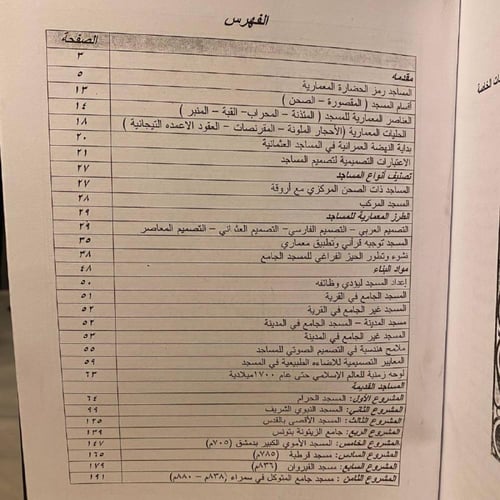 الفهرس
الصفحة
مقدمه ٣
المساجد رمز الحضارة المعمارية ٥
أقسام المسجد ( المقصورة – الصحن ) ١٣
العناصر المعمارية للمسجد ( المئذنة – المحراب– القبة – المنبر ) ١٤
الحليات المعمارية (الأحجار الملونة – المقرنصات – العقود الاعمده التيجانية ) ١٨
بداية النهضة العمرانية في المساجد العثمانية ٢٠
الاعتبارات التصميمية لتصميم المساجد ٢١
تصنيف أنواع المساجد ٢٧
المساجد ذات الصحن المركزي مع أروقة ٢٧
المسجد المركب ٢٨
الطرز المعمارية للمساجد ٢٩
التصميم العربي – التصميم الفارسي– التصميم العثماني – التصميم المعاصر ٢٩
المسجد توجيه قرآني وتطبيق معماري ٣٥
نشوء وتطور الحيز الفراغي للمسجد الجامع ٣٨
مواد البناء ٤٨
إعداد المسجد ليؤدي وظائفه ٥٠
المسجد الجامع في القرية ٥١
المسجد غير الجامع في القرية ٥٢
مسجد المدينة – المسجد الجامع في المدينة ٥٢
المسجد غير الجامع في المدينة ٥٣
ملامح هندسية في التصميم الصوتي للمساجد ٥٥
المعايير التصميمية للاضاءه الطبيعية في المسجد ٥٩
لوحه زمنية للعالم الإسلامي حتى عام ١٧٠٠ميلادية ٦٣
المساجد القديمة
المشروع الأول: المسجد الحرام ٦٤
المشروع الثاني: المسجد النبوي الشريف ٩٩
المشروع الثالث: المسجد الأقصى بالقدس ١٢٥
المشروع الرابع: جامع الزيتونة بتونس ١٣٩
المشروع الخامس: المسجد الأموي الكبير بدمشق (٧٠٥م) ١٤٧
المشروع السادس: مسجد قرطبة (٧٨٥م) ١٦٥
المشروع السابع: مسجد القيروان (٨٣٦م) ١٧٩
المشروع الثامن: مسجد جامع المتوكل في سمراء (٨٣٨م – ٨٨٠م) ١٩١